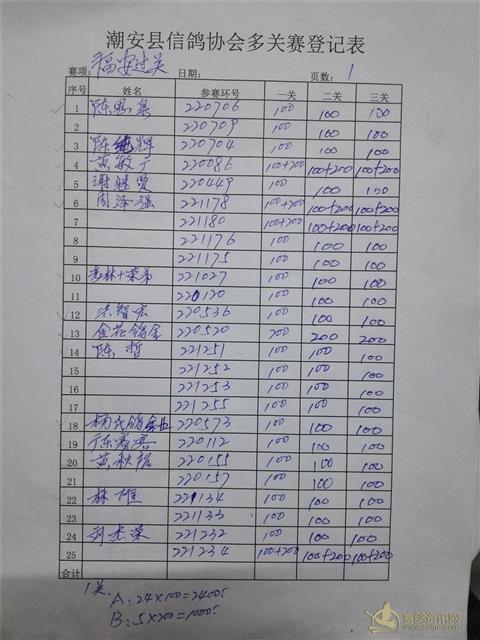 潮安县信鸽协会多关赛登记表
赛项: 福安过关 日期: 页数: 1
序号 姓名 参赛环号 一关 二关 三关
1 陈思泉 220706 100 100 100
2 220709 100 100 100
3 陈 辉 220704 100 100 100
4 黄敏 220086 100+200 100+200 100+200
5 谢继贤 220449 100 100 100
6 周泽强 221178 100+200 100+200 100+200
7 221180 100+200 100+200 100+200
8 221176 100 100 100
9 221175 100 100 100
10 221027 100 100 100
11 220120 100 100 100
12 洪智宏 220536 100 100 100
13 金花鸽舍 220520 200 200 200
14 陈哲 221251 100 100 100
15 221252 100 100 100
16 221253 100 100 100
17 221255 100 100 100
18 杨氏鸽业 220573 100 100 100
19 220112 100 100 100
20 黄 220155 100 100 100
21 220157 100 100 100
22 林雄 221134 100 100 100
23 221133 100 100 100
24 荣 221232 100 100 100
25 221234 100+200 100+200 100+200
合计
1关.
A: 24×100=2400;
B: 5×200=1000;